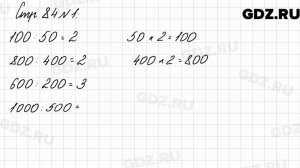 GDZ.RU
Стр. 84 №1.
100 : 50 = 2    50 × 2 = 100
800 : 400 = 2    400 × 2 = 800
600 : 200 = 3
1000 : 500 =
GDZ.RU